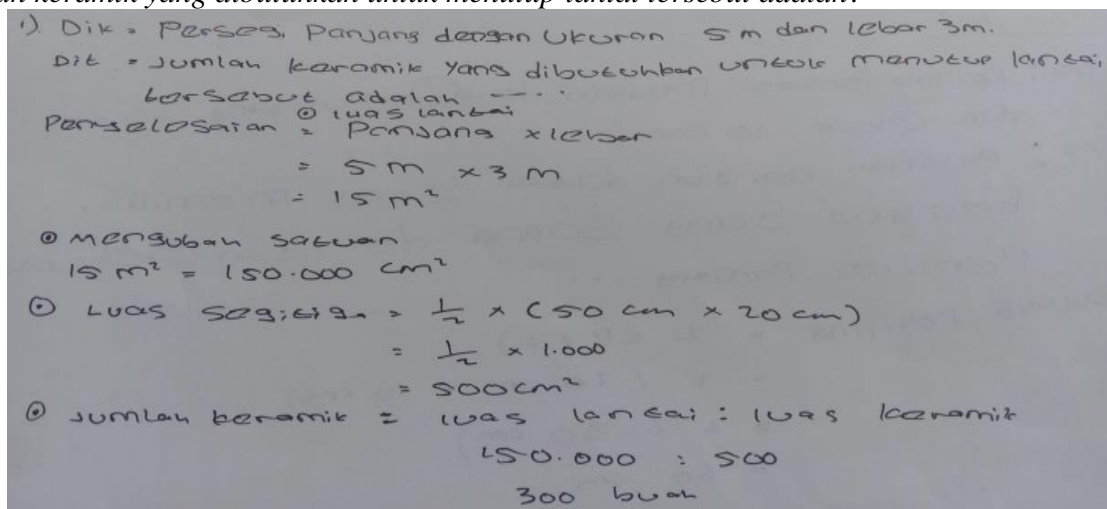 an keramik yang dibutuhkan untuk menutup lantai tersebut adalah?
1). Dik = Persegi Panjang dengan Ukuran 5 m dan lebar 3m.
Dit = Jumlah keramik Yang dibutuhkan untuk menutup lantai,
tersebut adalah ....
⊙ luas lantai
Penyelesaian = Panjang x lebar
= 5 m x 3 m
= 15 m²
⊙ mengubah satuan
15 m² = 150.000 cm²
⊙ Luas segitiga = 1/2 x (50 cm x 20 cm)
= 1/2 x 1.000
= 500cm²
⊙ Jumlah keramik = luas lantai : luas keramik
150.000 : 500
300 buah